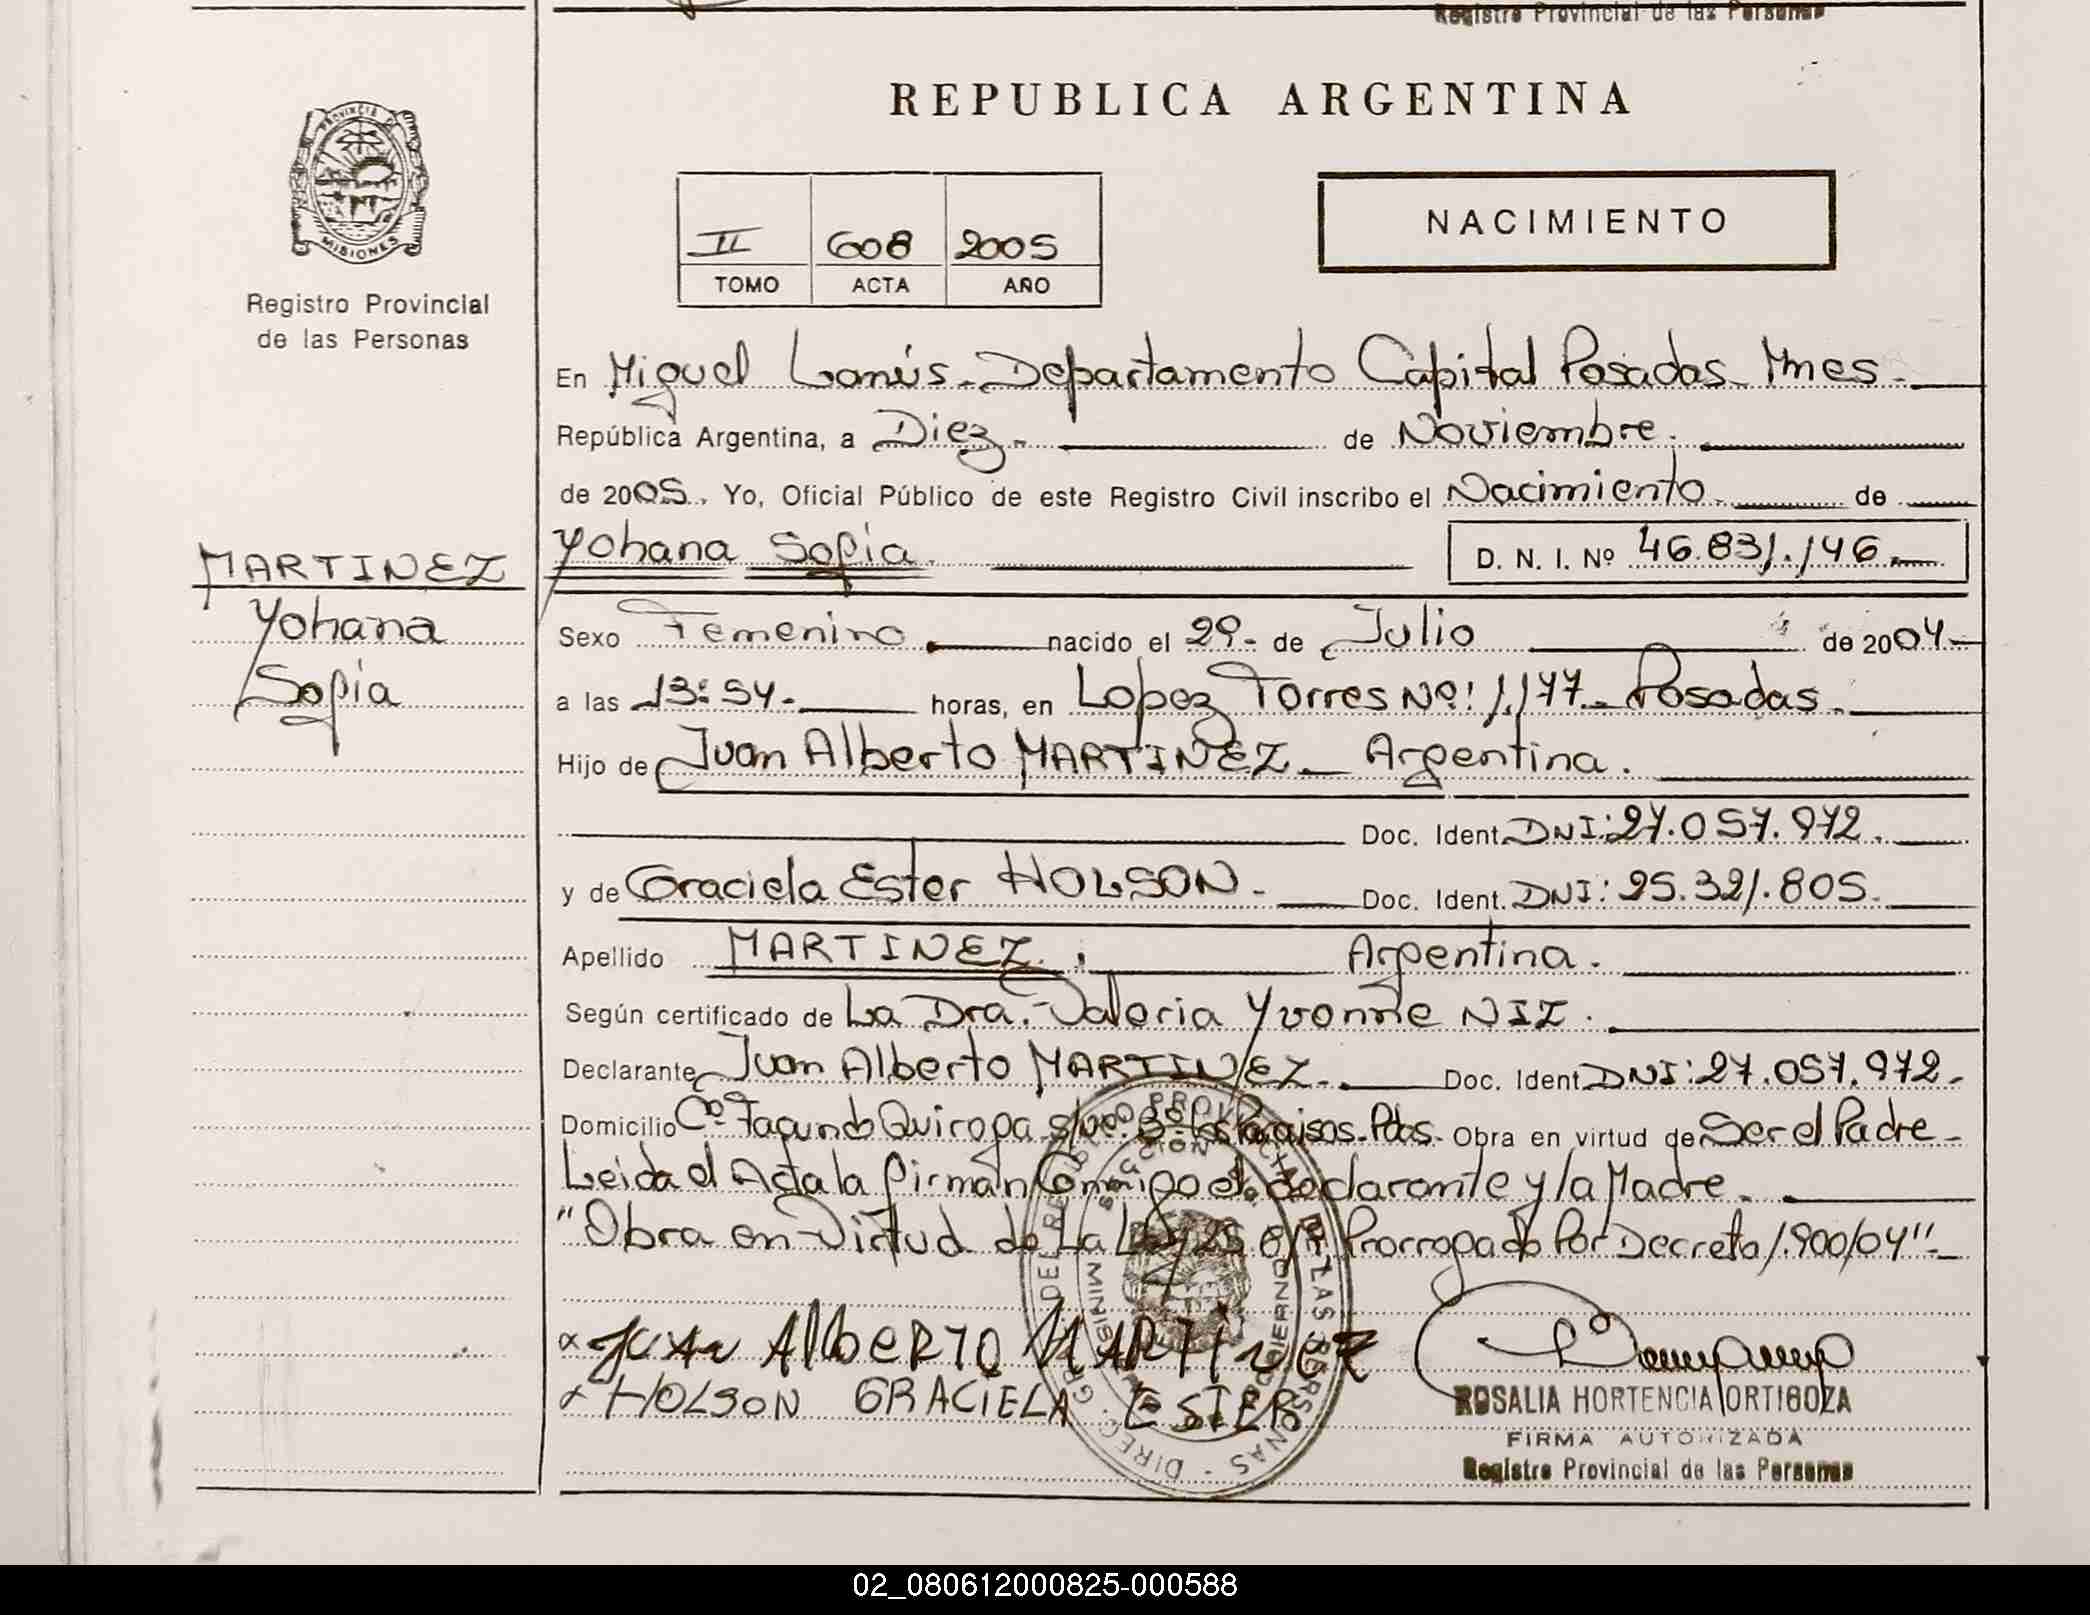 Registro Provincial de las Personas
REPUBLICA ARGENTINA
PROVINCIA DE
MISIONES
Registro Provincial
de las Personas
II 608 2005
TOMO ACTA AÑO
NACIMIENTO
En Miguel Lanús - Departamento Capital Posadas - Mnes -
República Argentina, a Diez - de Noviembre.
de 2005. Yo, Oficial Público de este Registro Civil inscribo el Nacimiento. de
MARTINEZ
Yohana
Sofia
Yohana Sofia.
D. N. I. Nº 46.831.146
Sexo Femenino. nacido el 29 - de Julio de 2004 -
a las 13:54 - horas, en Lopez Torres Nº: 1.177 - Posadas.
Hijo de Juan Alberto MARTINEZ - Argentina.
Doc. Ident. DNI: 27.057.972.
y de Graciela Ester HOLSON - Doc. Ident. DNI: 25.321.805.
Apellido MARTINEZ. Argentina.
Según certificado de La Dra. Valeria Yvonne NIZ.
Declarante Juan Alberto MARTINEZ - Doc. Ident DNI: 27.057.972 -
Domicilio Cº Facundo Quiroga s/nº Bº Los Paraisos - Pdas - Obra en virtud de Ser el Padre -
Leida el Acta la firman Conmigo el declarante y la Madre.
"Obra en Virtud de La Ley 25.819 Prorrogado Por Decreto 1.900/04" -
JUAN AlbERTO MARTINEZ
HOLSON GRACIELA ESTER
ROSALIA HORTENCIA ORTIGOZA
FIRMA AUTORIZADA
Registro Provincial de las Personas
02_080612000825-000588